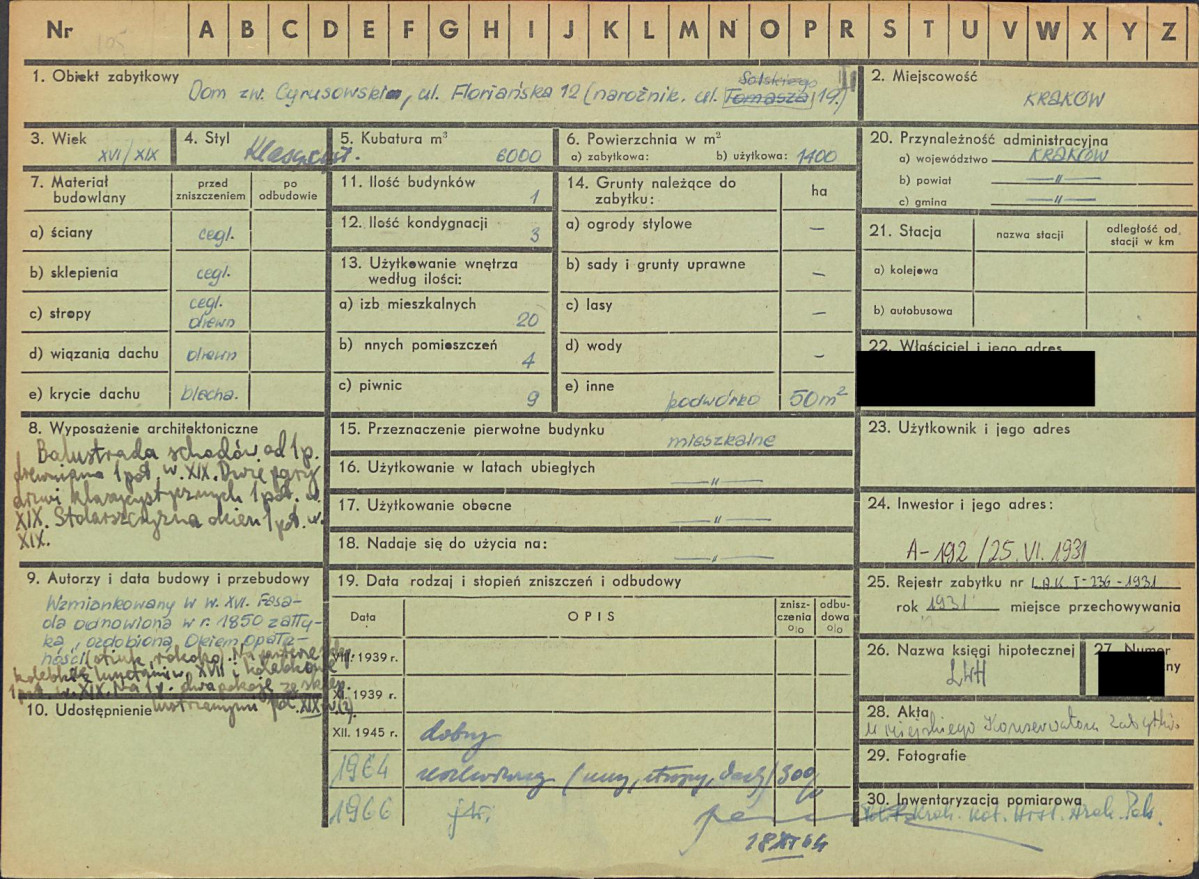 Nr 105 A B C D E F G H I J K L M N O P R S T U V W X Y Z
1. Obiekt zabytkowy
Solskiego
Dom zw. Cyrusowskim, ul. Floriańska 12 (narożnik. ul. Tomasza 19.)
2. Miejscowość
KRAKÓW
3. Wiek
XVI/XIX
4. Styl
Klasycyst.
5. Kubatura m³
6000
6. Powierzchnia w m²
a) zabytkowa: b) użytkowa: 1400
20. Przynależność administracyjna
a) województwo KRAKÓW
b) powiat -"-
c) gmina -"-
7. Materiał budowlany
przed zniszczeniem
po odbudowie
a) ściany cegl.
b) sklepienia cegl.
c) stropy cegl. drewn
d) wiązania dachu drewn
e) krycie dachu blacha.
11. Ilość budynków
1
12. Ilość kondygnacji
3
13. Użytkowanie wnętrza
według ilości:
a) izb mieszkalnych
20
b) nnych pomieszczeń
4
c) piwnic
9
14. Grunty należące do
zabytku:
ha
a) ogrody stylowe –
b) sady i grunty uprawne –
c) lasy –
d) wody –
e) inne podwórko 50 m²
21. Stacja
nazwa stacji
odległość od stacji w km
a) kolejowa
b) autobusowa
22. Właściciel i jego adres
8. Wyposażenie architektoniczne
Balustrada schodów od 1 p.
drewniana 1 poł. w. XIX. Dwie pary
drzwi klasycystycznych 1 poł. w.
XIX. Stolarszczyzna okien 1 poł. w.
XIX.
15. Przeznaczenie pierwotne budynku
mieszkalne
16. Użytkowanie w latach ubiegłych
-"-
17. Użytkowanie obecne
-"-
18. Nadaje się do użycia na:
-"-
23. Użytkownik i jego adres
24. Inwestor i jego adres:
A-192/25.VI.1931
25. Rejestr zabytku nr L.A.K I-236-1931
rok 1931 miejsce przechowywania
26. Nazwa księgi hipotecznej
LWH
27. Numer
28. Akta
Miejskiego Konserwatora Zabytków
29. Fotografie
30. Inwentaryzacja pomiarowa
Polit. Krak. Kat. Hist. Arch. Pols.
9. Autorzy i data budowy i przebudowy
Wzmiankowany w w. XVI. Fasa-
da odnowiona w r. 1850 z atty-
ką, ozdobioną Okiem Opatrz-
ności
10. Udostępnienie
19. Data rodzaj i stopień zniszczeń i odbudowy
Data
OPIS
znisz-
czenia
%
odbu-
dowa
%
VIII. 1939 r.
XI. 1939 r.
XII. 1945 r. dobry
1964 (mury, stropy, dach) 30%
1966 jw.
18 XI 64